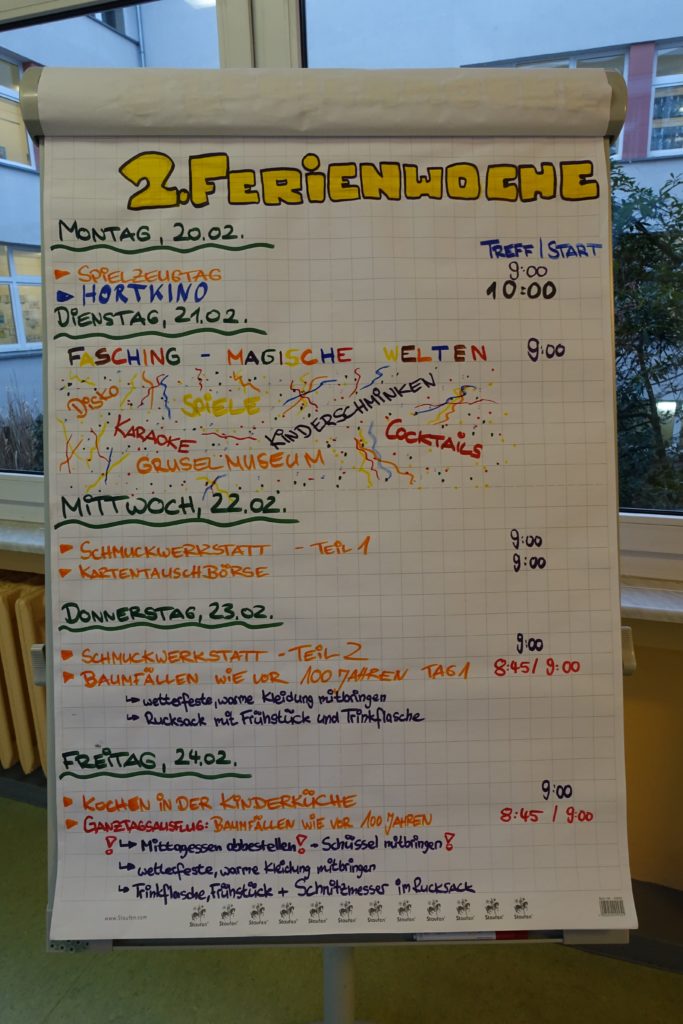 2. FERIENWOCHE
MONTAG, 20.02.
TREFF / START
► SPIELZEUGTAG 9:00
► HORTKINO 10:00
DIENSTAG, 21.02.
FASCHING - MAGISCHE WELTEN 9:00
DISKO
SPIELE
KINDERSCHMINKEN
KARAOKE
COCKTAILS
GRUSELMUSEUM
MITTWOCH, 22.02.
► SCHMUCKWERKSTATT - TEIL 1 9:00
► KARTENTAUSCHBÖRSE 9:00
DONNERSTAG, 23.02.
► SCHMUCKWERKSTATT - TEIL 2 9:00
► BAUMFÄLLEN WIE VOR 100 JAHREN TAG 1 8:45 / 9:00
↳ wetterfeste, warme Kleidung mitbringen
↳ Rucksack mit Frühstück und Trinkflasche
FREITAG, 24.02.
► KOCHEN IN DER KINDERKÜCHE 9:00
► GANZTAGSAUSFLUG: BAUMFÄLLEN WIE VOR 100 JAHREN 8:45 / 9:00
! ↳ Mittagessen abbestellen! - Schüssel mitbringen!
↳ wetterfeste, warme Kleidung mitbringen
↳ Trinkflasche, Frühstück + Schnitzmesser im Rucksack
www.Staufen.com
Staufen Staufen Staufen Staufen Staufen Staufen Staufen Staufen Staufen Staufen Staufen Staufen